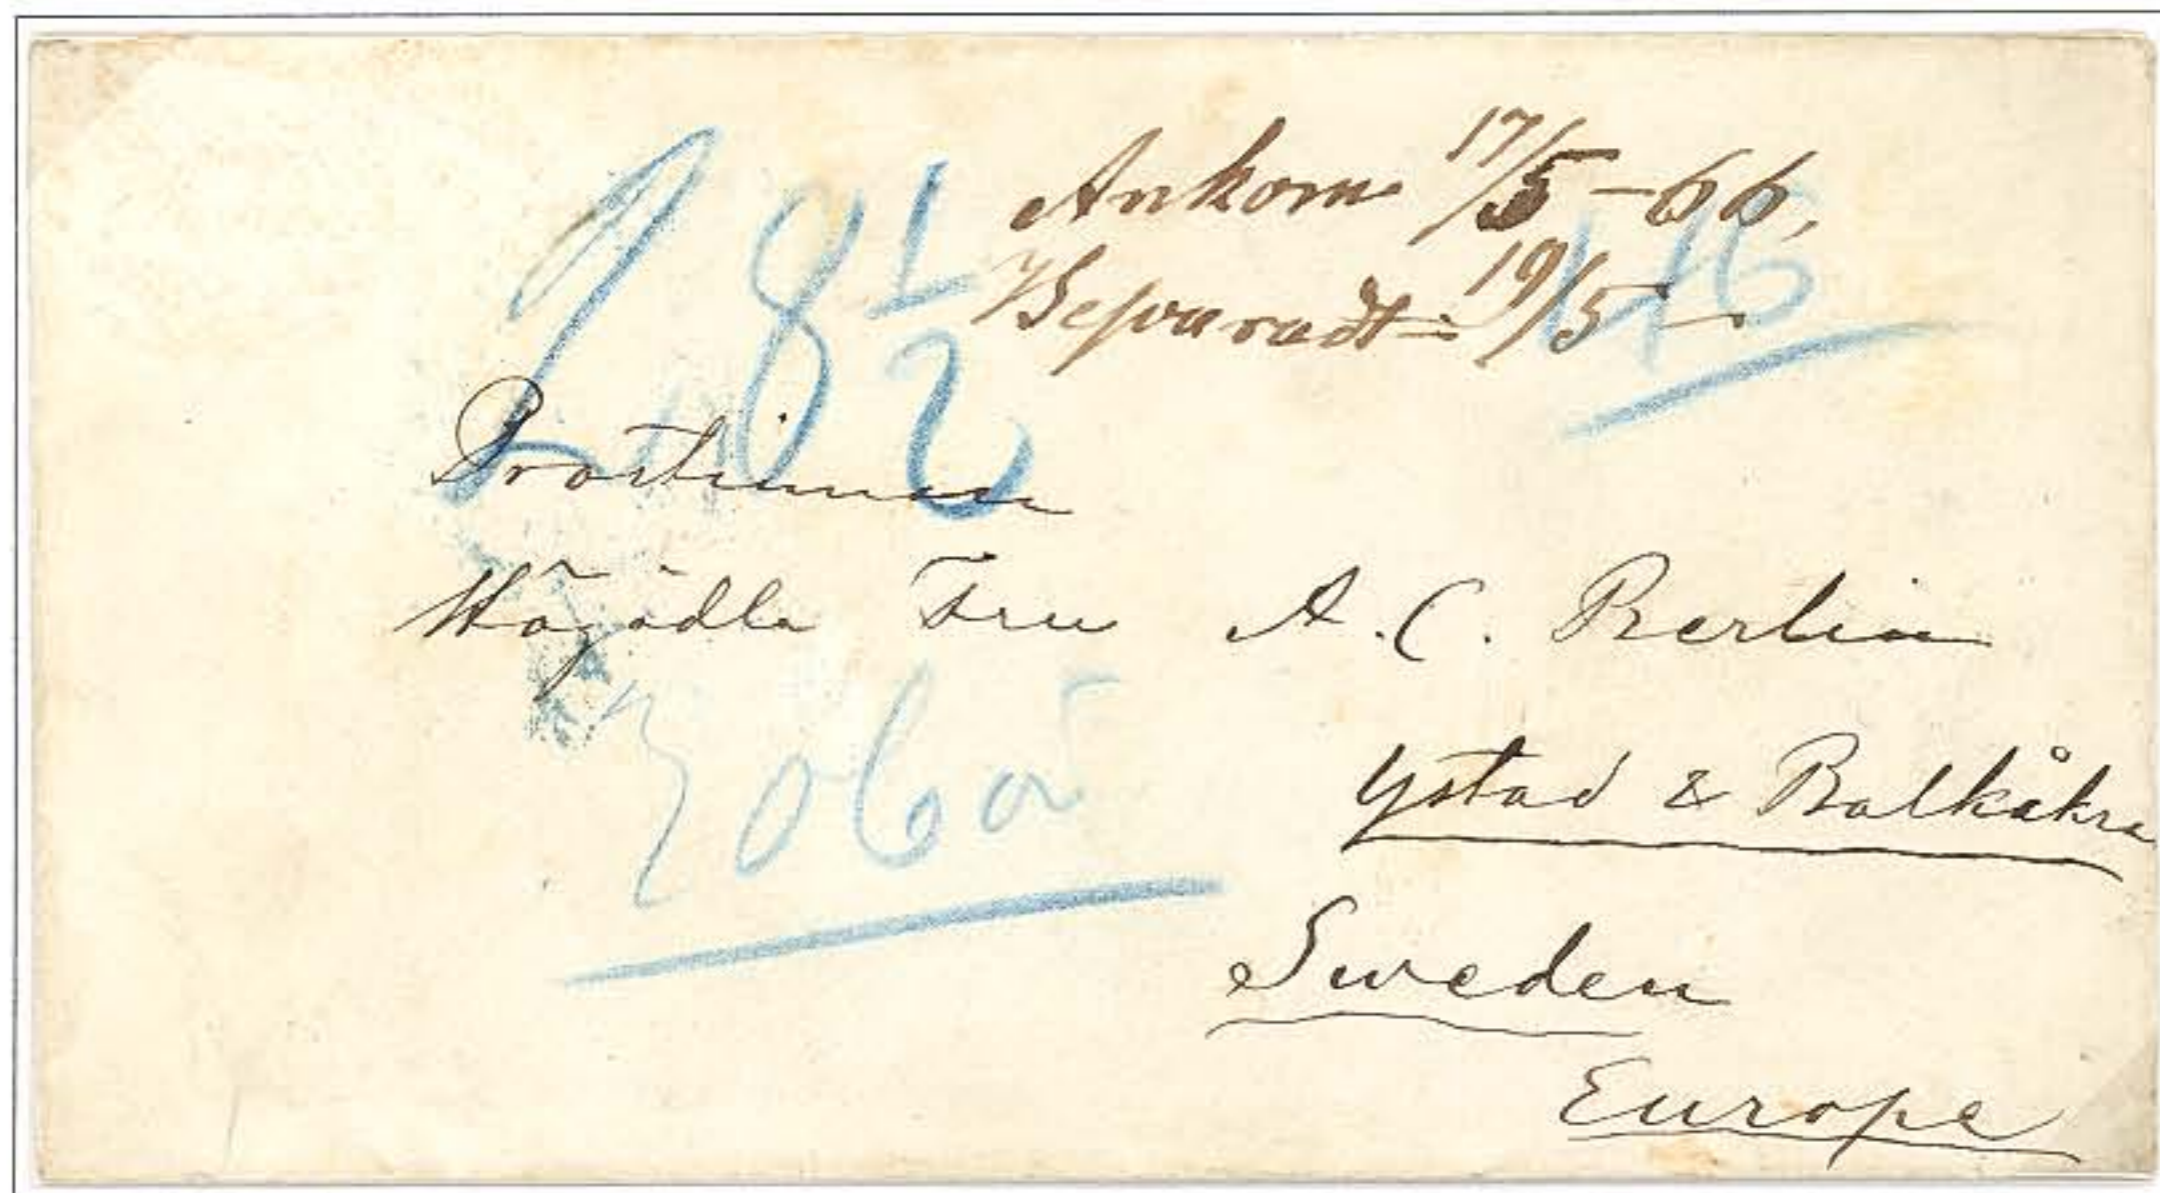 Ankom 17/5 - 66,
Besvaradt 19/5 -
8 1/2
Prostinnan
Högädla Fru A. C. Berlin
Ystad & Balkåkra
Sweden
Europe